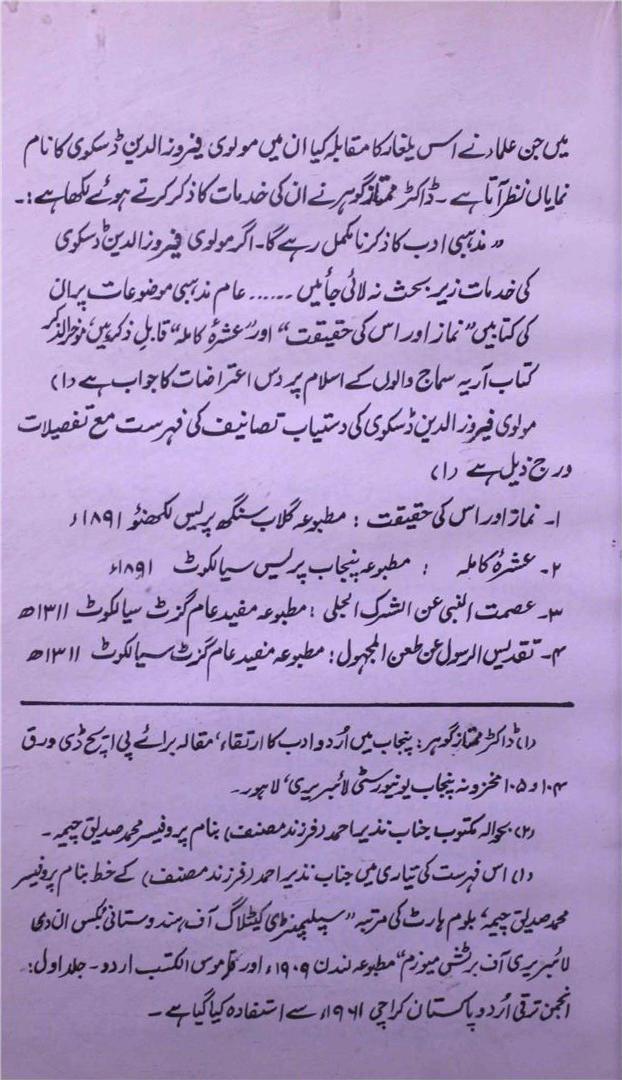 میں جن علماء نے اس یلغار کا مقابلہ کیا ان میں مولوی فیروز الدین ڈسکوی کا نام
نمایاں نظر آتا ہے ۔ ڈاکٹر ممتاز گوہر نے ان کی خدمات کا ذکر کرتے ہوئے لکھا ہے :۔
” مذہبی ادب کا ذکر نا مکمل رہے گا ۔ اگر مولوی فیروز الدین ڈسکوی
کی خدمات زیر بحث نہ لائی جائیں ...... عام مذہبی موضوعات پر ان
کی کتابیں ”نماز اور اس کی حقیقت“ اور ”عشرۂ کاملہ“ قابلِ ذکر ہیں، مؤخر الذکر
کتاب آریہ سماج والوں کے اسلام پر دس اعتراضات کا جواب ہے (۱)
مولوی فیروز الدین ڈسکوی کی دستیاب تصانیف کی فہرست مع تفصیلات
درج ذیل ہے (۱)
۱۔ نماز اور اس کی حقیقت : مطبوعہ گلاب سنگھ پریس لکھنؤ ۱۸۹۱ء
۲۔ عشرۂ کاملہ : مطبوعہ پنجاب پریس سیالکوٹ ۱۸۹۱ء
۳۔ عصمت النبی عن الشرک الجلی : مطبوعہ مفید عام گزٹ سیالکوٹ ۱۳۱۱ھ
۴۔ تقدیس الرسول عن طعن المجہول : مطبوعہ مفید عام گزٹ سیالکوٹ ۱۳۱۱ھ
(۱) ڈاکٹر ممتاز گوہر : پنجاب میں اُردو ادب کا ارتقاء، مقالہ برائے پی ایچ ڈی ورق
۱۰۴ و ۱۰۵ مخزونہ پنجاب یونیورسٹی لائبریری، لاہور ۔
(۲) بحوالہ مکتوب جناب نذیر احمد (فرزند مصنف) بنام پروفیسر محمد صدیق چیمہ ۔
(۱) اس فہرست کی تیاری میں جناب نذیر احمد (فرزند مصنف) کے خط بنام پروفیسر
محمد صدیق چیمہ، بلوم ہارٹ کی مرتبہ ”سپلیمنٹری کیٹلاگ آف ہندوستانی بکس ان دی
لائبریری آف برٹش میوزم“ مطبوعہ لندن ۱۹۰۹ء اور قاموس الکتب اردو ۔ جلد اول :
انجمن ترقی اُردو پاکستان کراچی ۱۹۶۱ء سے استفادہ کیا گیا ہے ۔